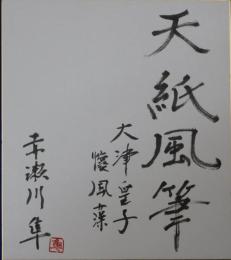 天紙風筆
大津皇子
懐風藻
赤瀬川隼